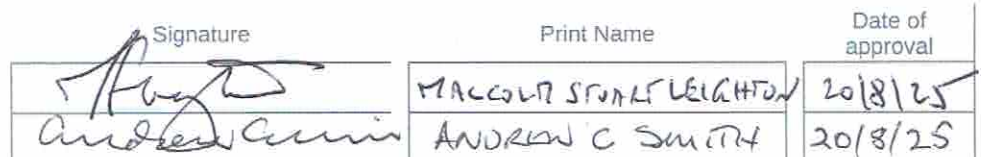 Signature Print Name Date of approval
MALCOLM STUART LEIGHTON 20/8/25
ANDREW C SMITH 20/8/25